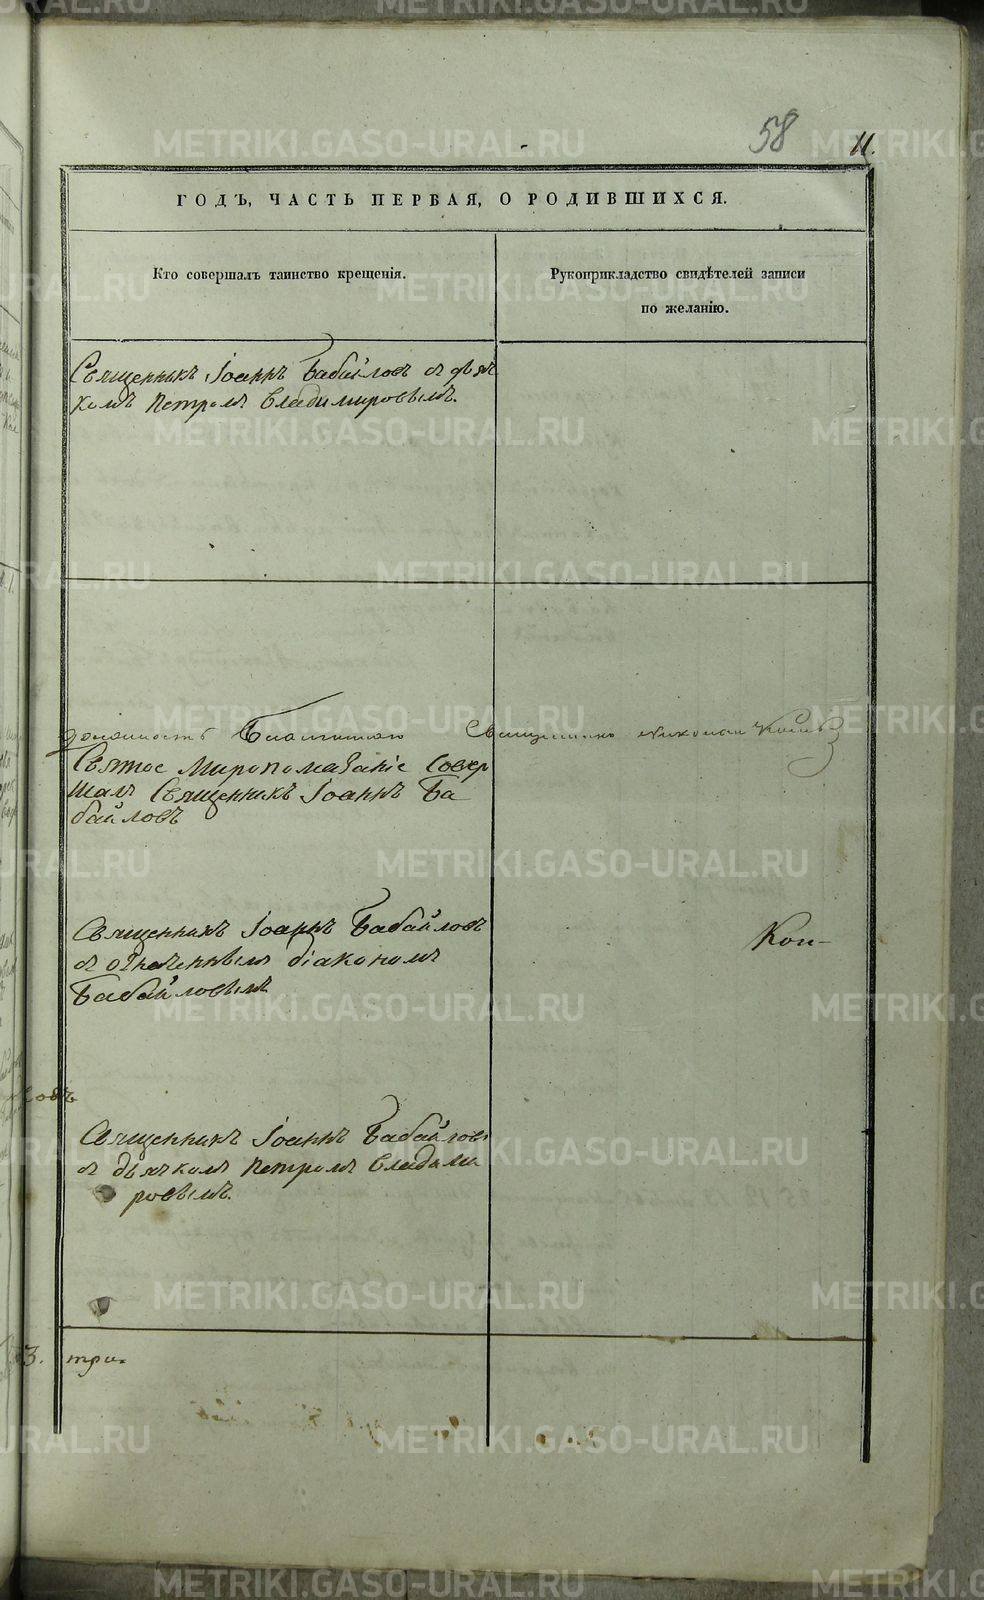 58 11.
ГОДЪ, ЧАСТЬ ПЕРВАЯ, О РОДИВШИХСЯ.
Кто совершалъ таинство крещенія.
Рукоприкладство свидѣтелей записи
по желанію.
Священникъ Іоаннъ Бабайловъ съ дьяч
комъ Петромъ Владимировымъ.
должность Благочиннаго Священникъ Николай
Святое Миропомазаніе Совер
шалъ Священникъ Іоаннъ Ба
байловъ
Священникъ Іоаннъ Бабайловъ
съ означеннымъ діакономъ
Бабайловымъ
Коп-
Священникъ Іоаннъ Бабайловъ
съ дьячкомъ Петромъ Владими
ровымъ.
3. три.
METRIKI.GASO-URAL.RU